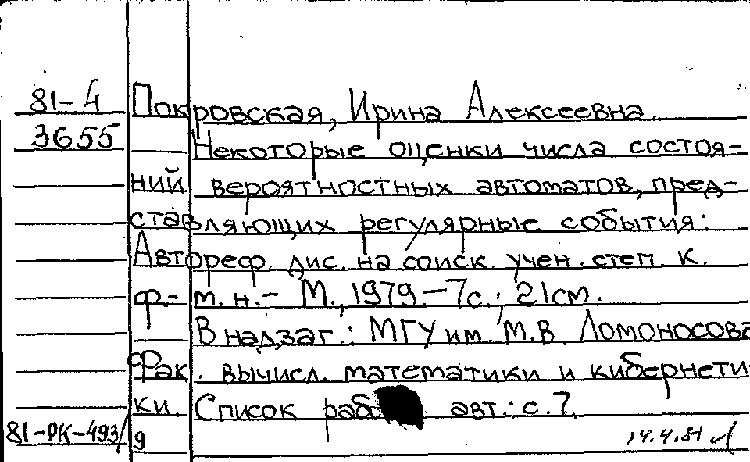 81-4 Покровская, Ирина Алексеевна.
3655 Некоторые оценки числа состоя-
ний вероятностных автоматов, пред-
ставляющих регулярные события:
Автореф. дис. на соиск. учен. степ. к.
ф.-м.н.- М., 1979.-7с.; 21см.
В надзаг.: МГУ им. М.В. Ломоносова
Фак. вычисл. математики и кибернети-
ки. Список раб авт.: с.7.
81-РК-493/9 14.4.81